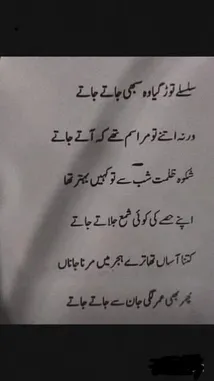 سلسلے توڑ گیا وہ سبھی جاتے جاتے
ورنہ اتنے تو مراسم تھے کہ آتے جاتے
شکوہ ظلمت شب سے تو کہیں بہتر تھا
اپنے حصے کی کوئی شمع جلاتے جاتے
کتنا آساں تھا ترے ہجر میں مرنا جاناں
پھر بھی عمر لگی جان سے جاتے جاتے